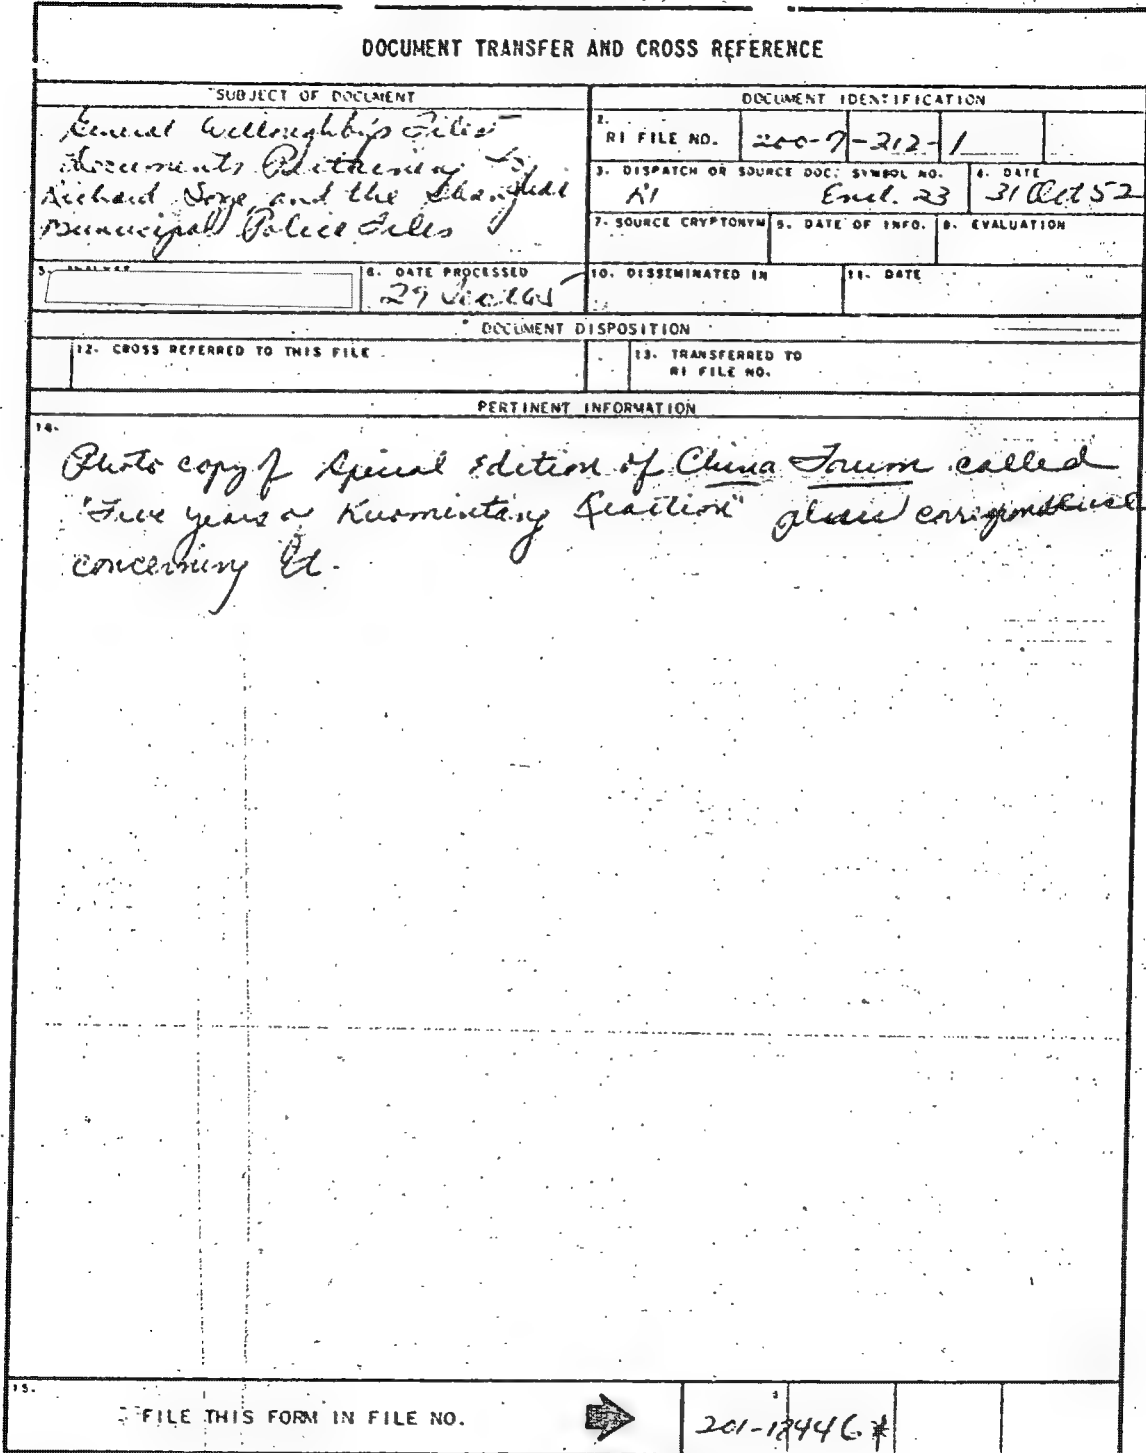 DOCUMENT TRANSFER AND CROSS REFERENCE
SUBJECT OF DOCUMENT
General Willoughby's Files
Documents Pertaining to
Richard Sorge and the Shanghai
Municipal Police Files
DOCUMENT IDENTIFICATION
2.
RI FILE NO. 200-7-212-1
3. DISPATCH OR SOURCE DOC. SYMBOL NO.
RI Encl. 23
4. DATE
31 Oct 52
7. SOURCE CRYPTONYM
5. DATE OF INFO.
9. EVALUATION
5. ANALYST
6. DATE PROCESSED
29
10. DISSEMINATED IN
11. DATE
DOCUMENT DISPOSITION
12. CROSS REFERRED TO THIS FILE
13. TRANSFERRED TO
RI FILE NO.
PERTINENT INFORMATION
14.
Photo copy of Special Edition of China Forum called
"Five years of Kuomintang Reaction" plus correspondence
concerning it.
15.
FILE THIS FORM IN FILE NO.